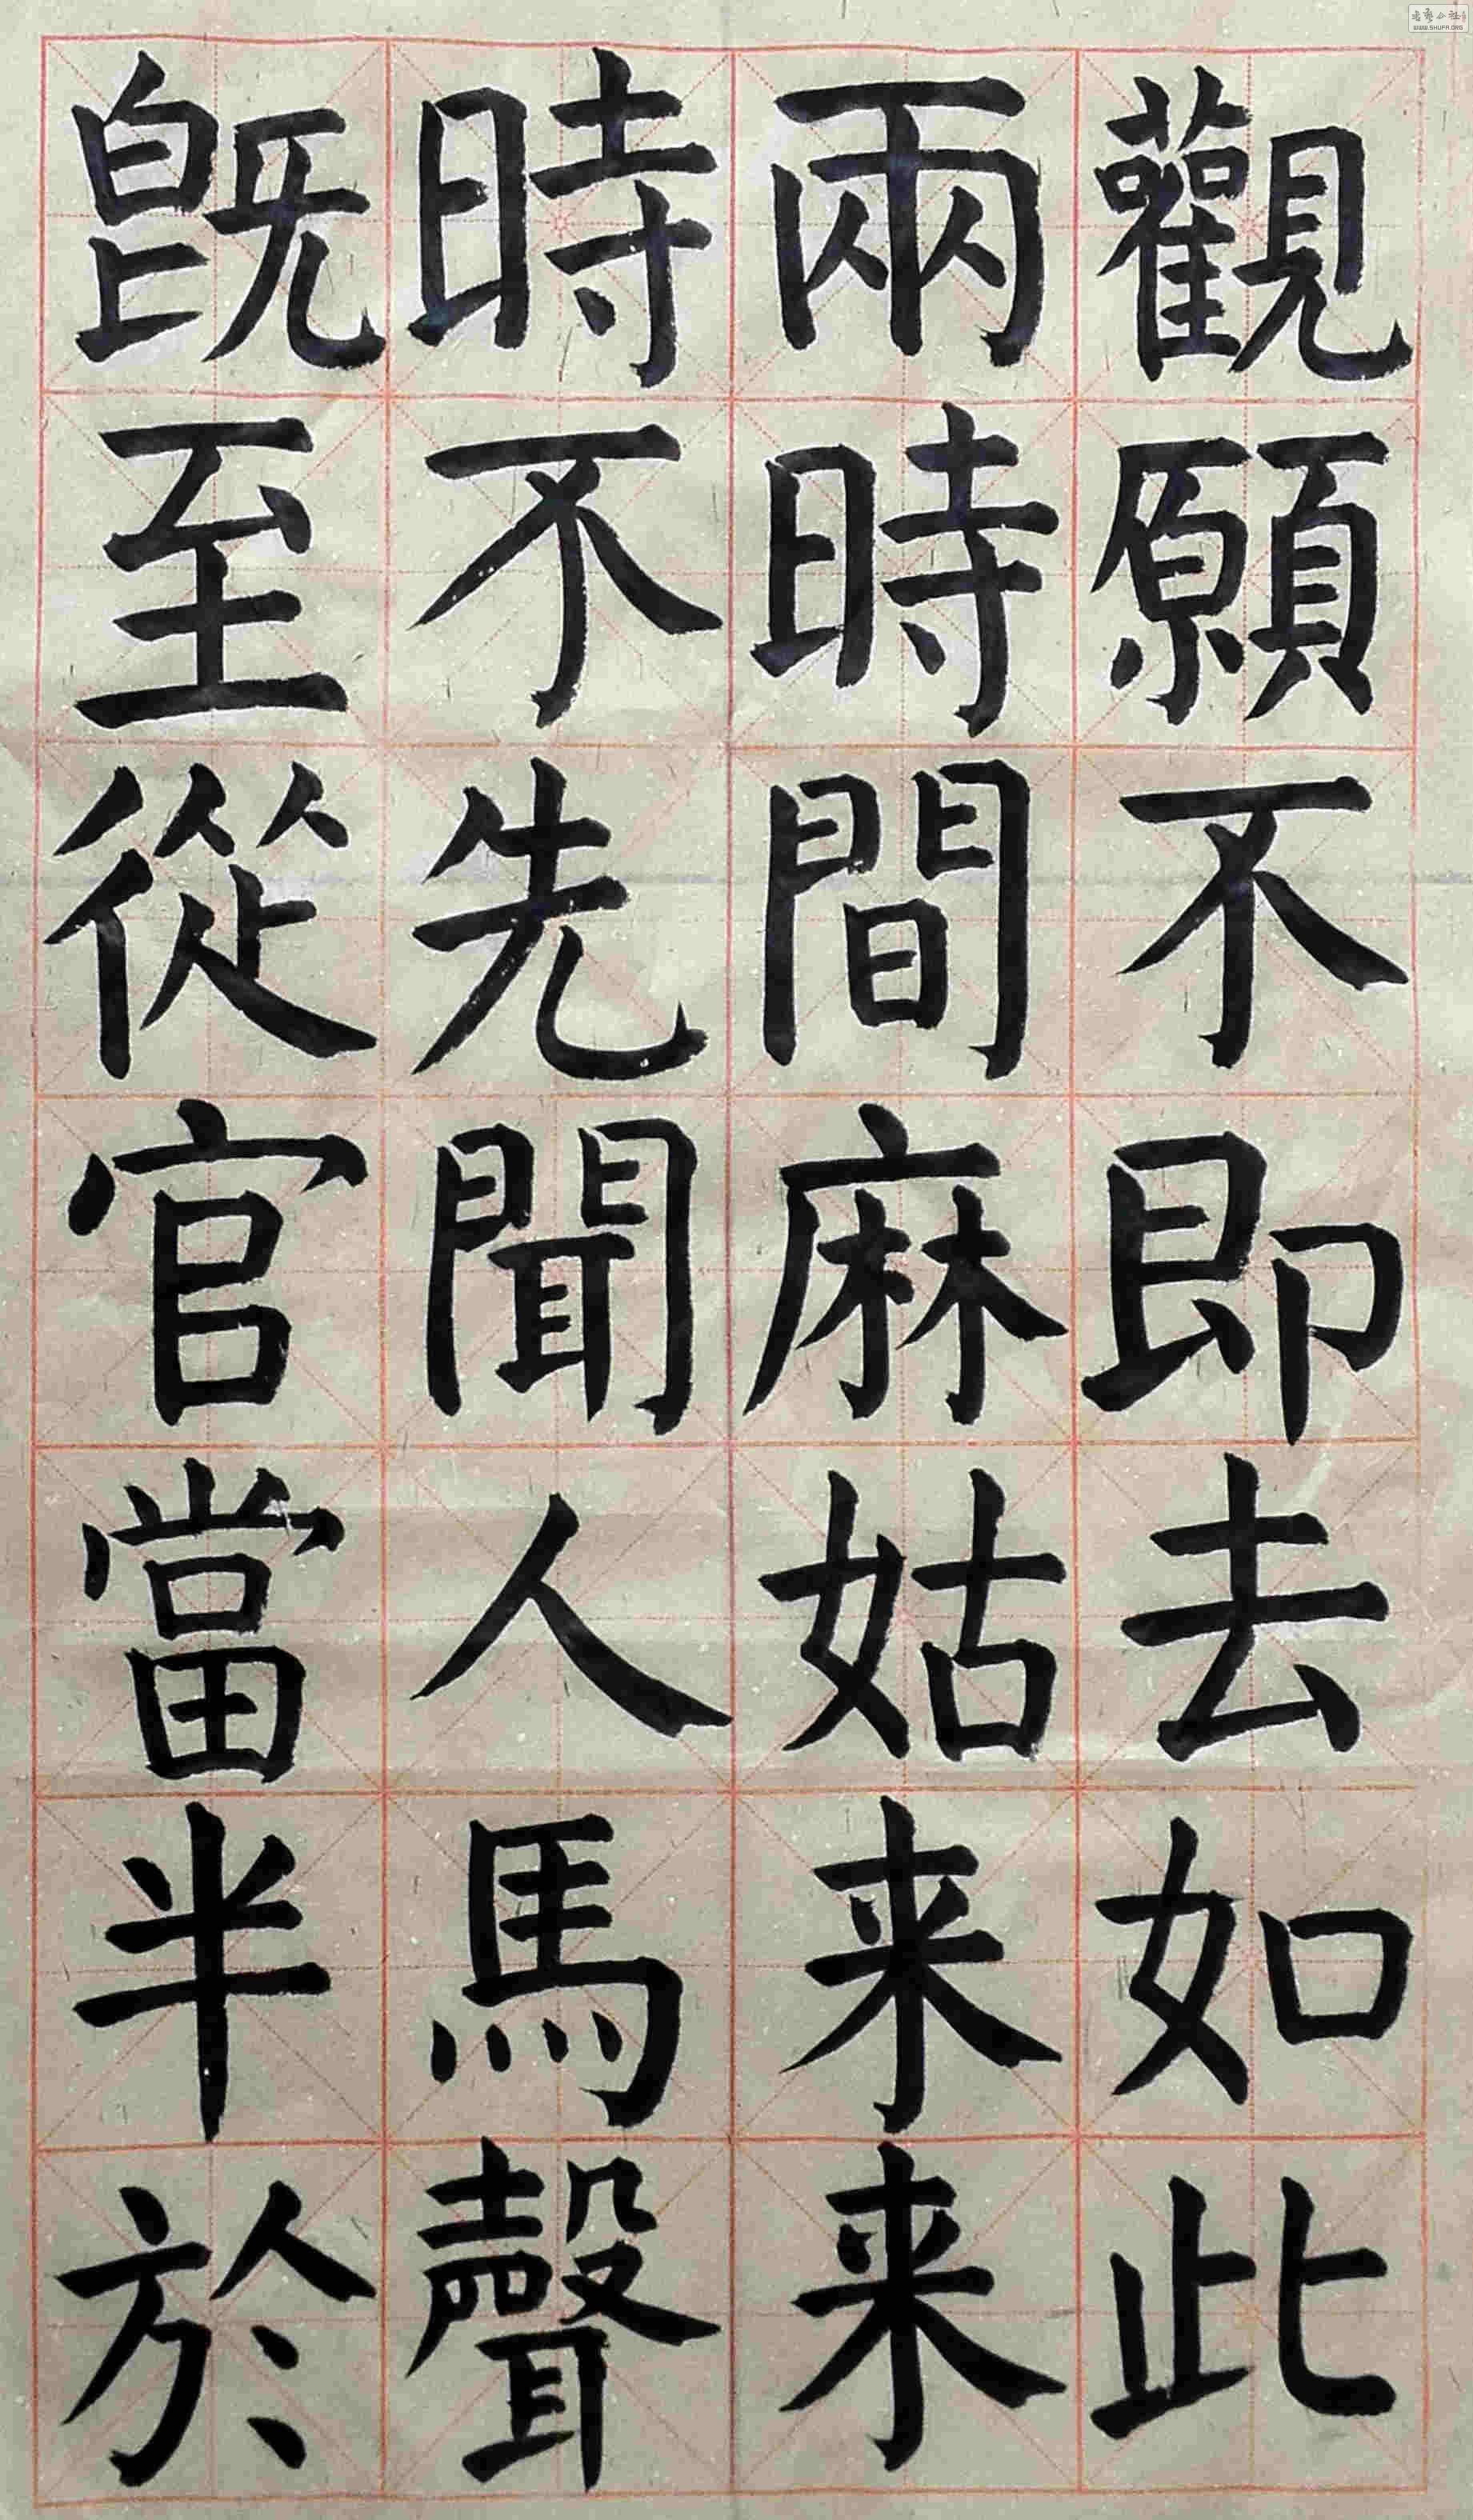 觀願不即去如此
兩時間麻姑来来
時不先聞人馬聲
既至從官當半於
WWW.SHUFA.ORG